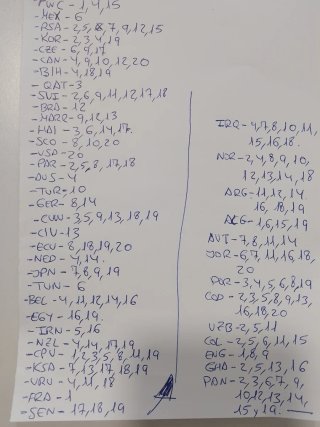 FWC - 1,4,15
- MEX - 6
- RSA - 2,5,8,7,9,12,15
- KOR - 2,3,4,19
- CZE - 6,9,17
- CAN - 4,9,10,12,20
- BIH - 4,18,19
- QAT - 3
- SUI - 2,6,9,11,12,17,18
- BRA - 12
- MARR - 9,12,13
- HAI - 3,6,14,17.
- SCO - 8,10,20
- USA - 20
- PAR - 2,5,8,17,18
- AUS - 4
- TUR - 10
- GER - 8,14
- CUW - 3,5,9,13,18,19
- CIV - 13
- ECU - 8,18,19,20
- NED - 4,14.
- JPN - 7,8,9,19
- TUN - 6
- BEL - 4,11,12,14,16
- EGY - 16,19.
- IRN - 5,16
- NZL - 4,14,17,19
- CPV - 1,2,3,5,8,11,19
- KSA - 7,13,17,18,19
- URU - 4,11,18
- FRA - 1
- SEN - 17,18,19
IRQ - 4,7,8,10,11,
15,16,18.
NOR - 2,4,8,9,10,
12,13,14,18
ARG - 11,12,14
16,18,19
ALG - 1,6,15,19
AUT - 7,8,11,14
JOR - 6,7,11,16,18
20
POR - 3,4,5,6,8,19
COD - 2,3,5,8,9,13,
16,18,20
UZB - 2,5,11
COL - 2,5,6,11,15
ENG - 1,8,9
GHA - 2,5,13,16
PAN - 2,3,6,7,9,
10,12,13,14,
15 y 19.